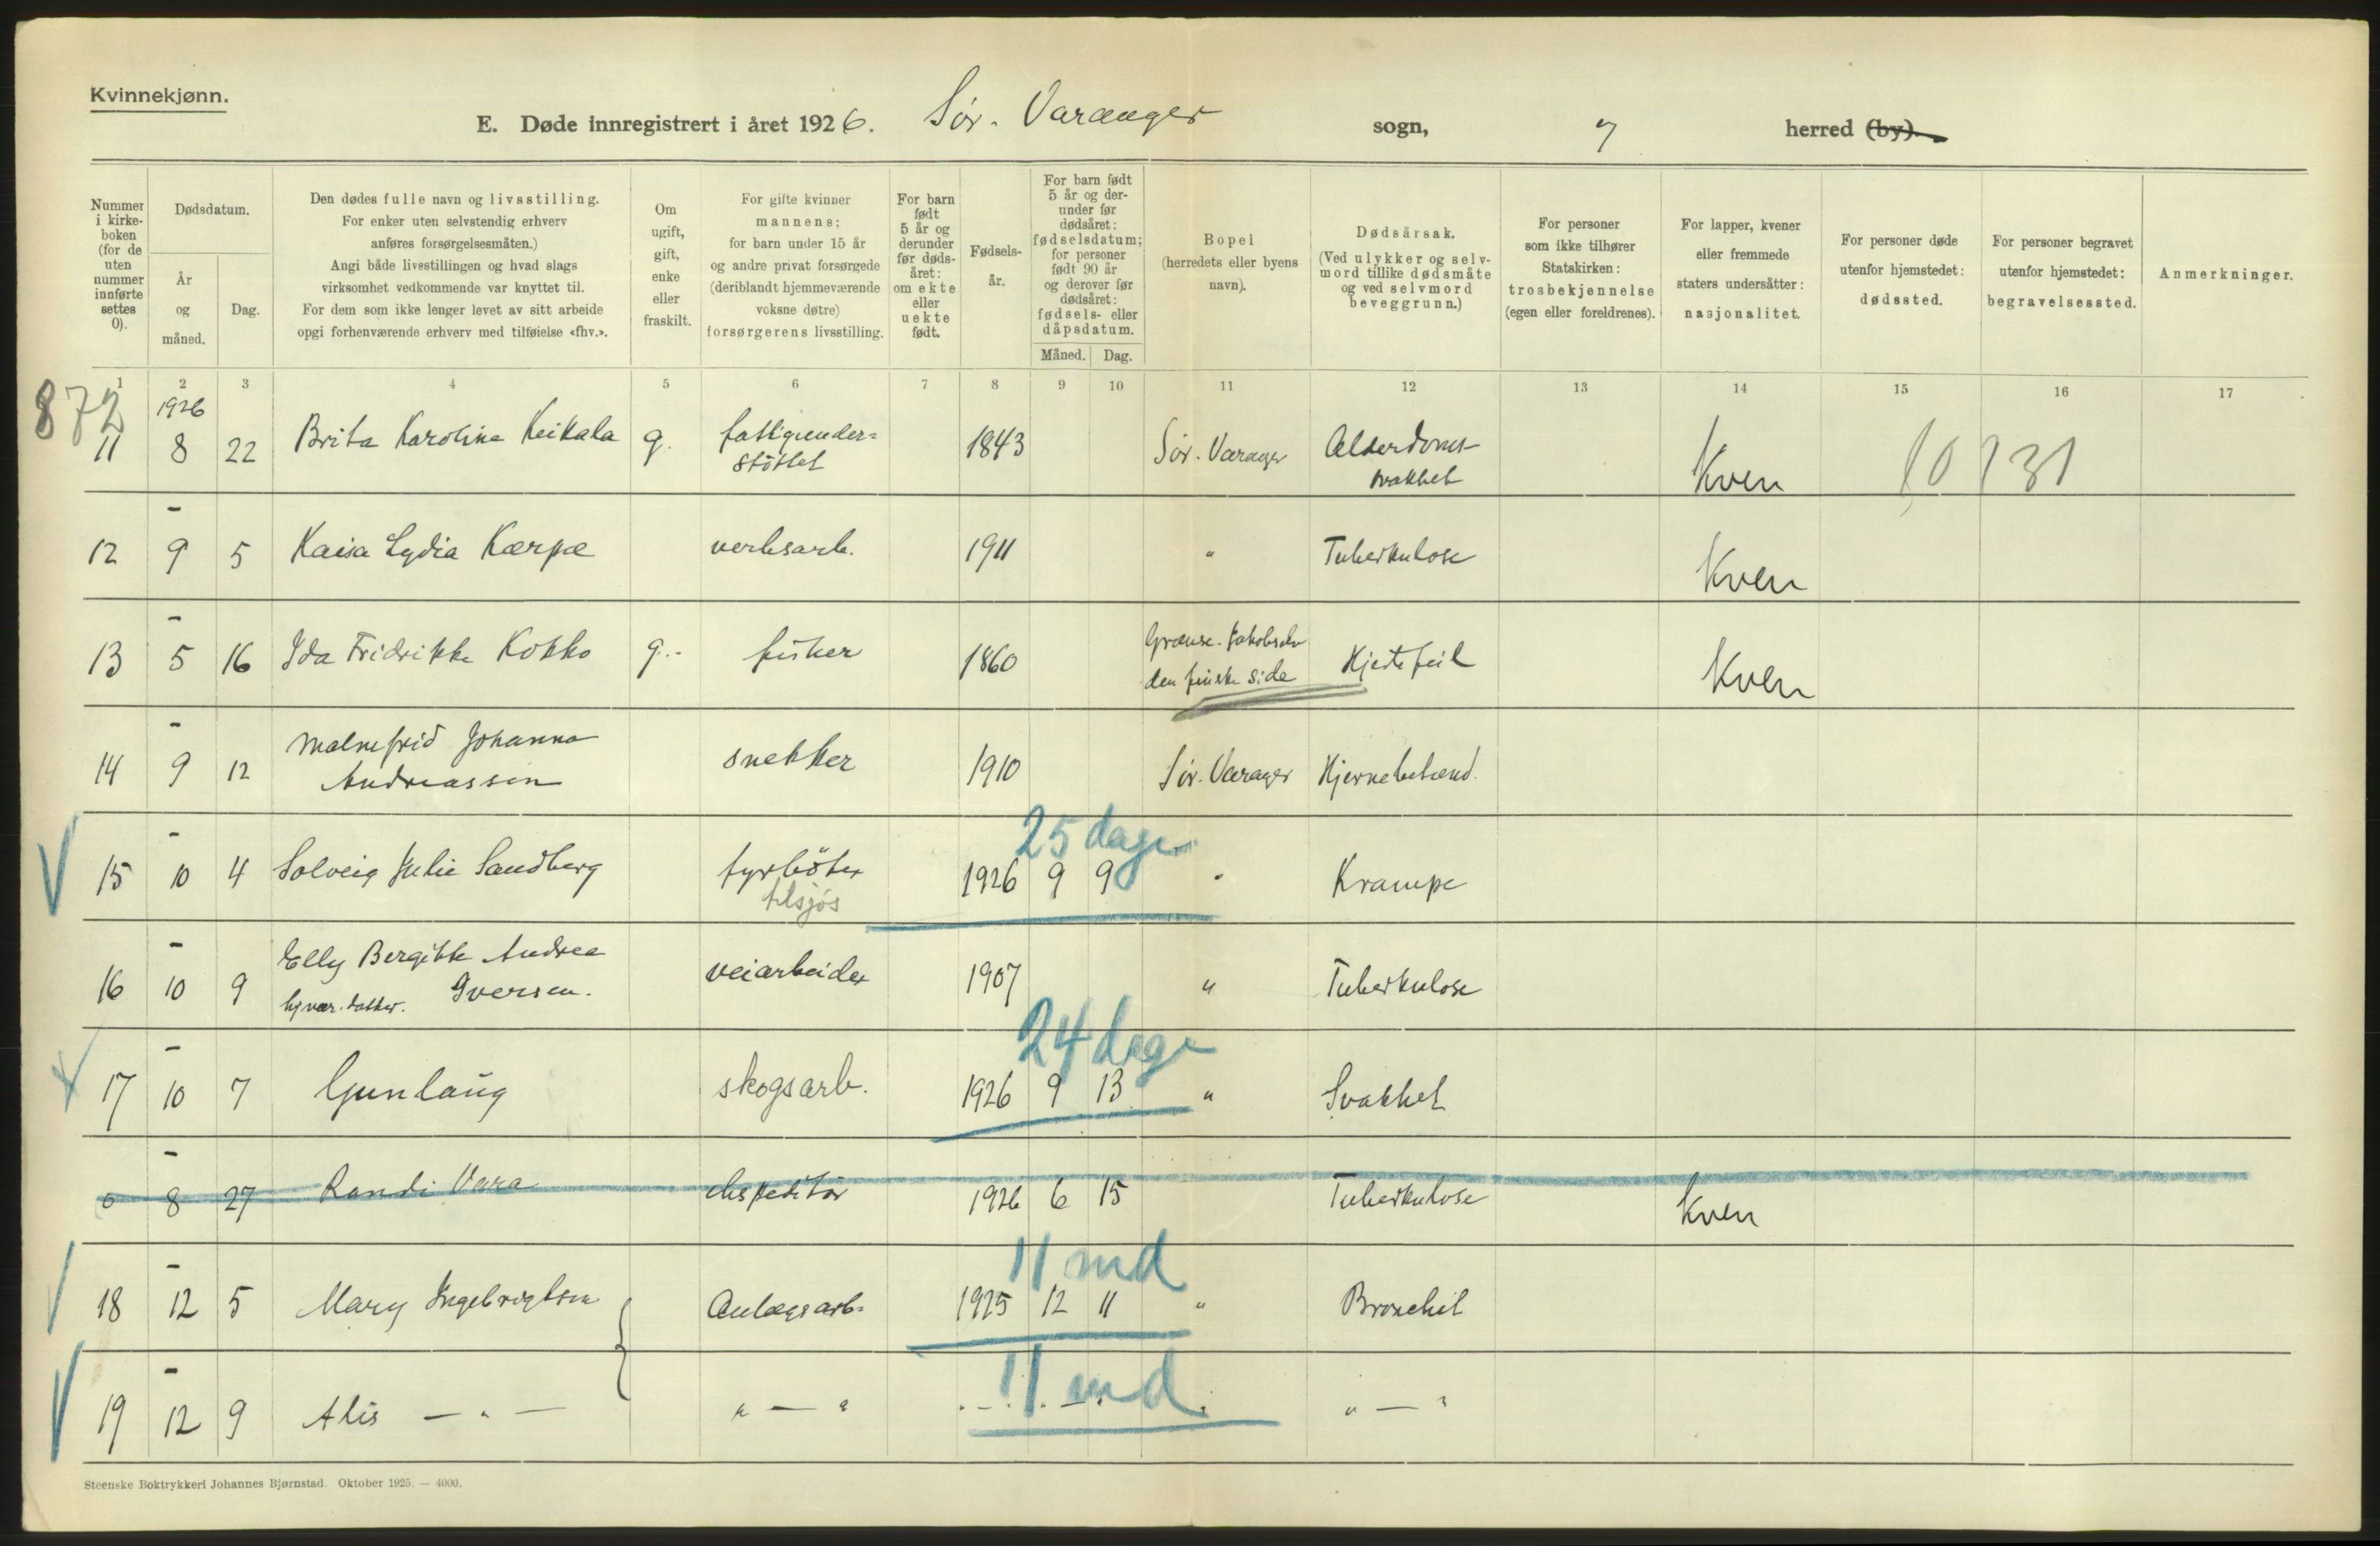 Kvinnekjønn.
E. Døde innregistrert i året 1926. Sør-Varanger sogn, " herred (by).
Nummer i kirkeboken (for de uten nummer innførte settes 0).
Dødsdatum.
År og måned.
Dag.
Den dødes fulle navn og livsstilling.
For enker uten selvstendig erhverv
anføres forsørgelsesmåten.)
Angi både livsstillingen og hvad slags
virksomhet vedkommende var knyttet til.
For dem som ikke lenger levet av sitt arbeide
opgi forhenværende erhverv med tilføielse «fhv.».
Om ugift, gift, enke eller fraskilt.
For gifte kvinner
mannens;
for barn under 15 år
og andre privat forsørgede
(deriblandt hjemmeværende
voksne døtre)
forsørgerens livsstilling.
For barn født 5 år og derunder før dødsåret: om ekte eller uekte født.
Fødselsår.
For barn født 5 år og derunder før dødsåret: fødselsdatum; for personer født 90 år og derover før dødsåret: fødsels- eller dåpsdatum.
Måned. Dag.
Bopel
(herredets eller byens navn).
Dødsårsak.
(Ved ulykker og selvmord tillike dødsmåte og ved selvmord beveggrunn.)
For personer som ikke tilhører Statskirken: trosbekjennelse (egen eller foreldrenes).
For lapper, kvener eller fremmede staters undersåtter: nasjonalitet.
For personer døde utenfor hjemstedet: dødssted.
For personer begravet utenfor hjemstedet: begravelsessted.
Anmerkninger.
1 2 3 4 5 6 7 8 9 10 11 12 13 14 15 16 17
872
1926
11 8 22 Brita Karoline Keikala g. fattigunderstøttet 1843 Sør-Varanger Alderdomssvakhet Kven 10131
12 - 9 5 Kaisa Lydia Kærpæ verksarb. 1911 " Tuberkulose Kven
13 - 5 16 Ida Fridrikke Kokko g. fisker 1860 Grænse-Jakobselv den finske side Hjertefeil Kven
14 - 9 12 Malmfrid Johanna Andreassen snekker 1910 Sør-Varanger Hjernebetænd.
25 dager
15 - 10 4 Solveig Julie Sandberg fyrbøter tilsjøs 1926 9 9 " Krampe
16 - 10 9 Elly Bergitte Andrea Iversen. hjvær. datter. veiarbeider 1907 " Tuberkulose
24 dage
17 - 10 7 Gunlaug skogsarb. 1926 9 13 " Svakhet
0 - 8 27 Randi Vara ekspeditør 1926 6 15 Tuberkulose Kven
11 md
18 - 12 5 Mary Ingebrigtsen Anlægsarb. 1925 12 11 " Bronchit
11 md
19 - 12 9 Alis — " — " — " " — "
Steenske Boktrykkeri Johannes Bjørnstad. Oktober 1925. — 4000.